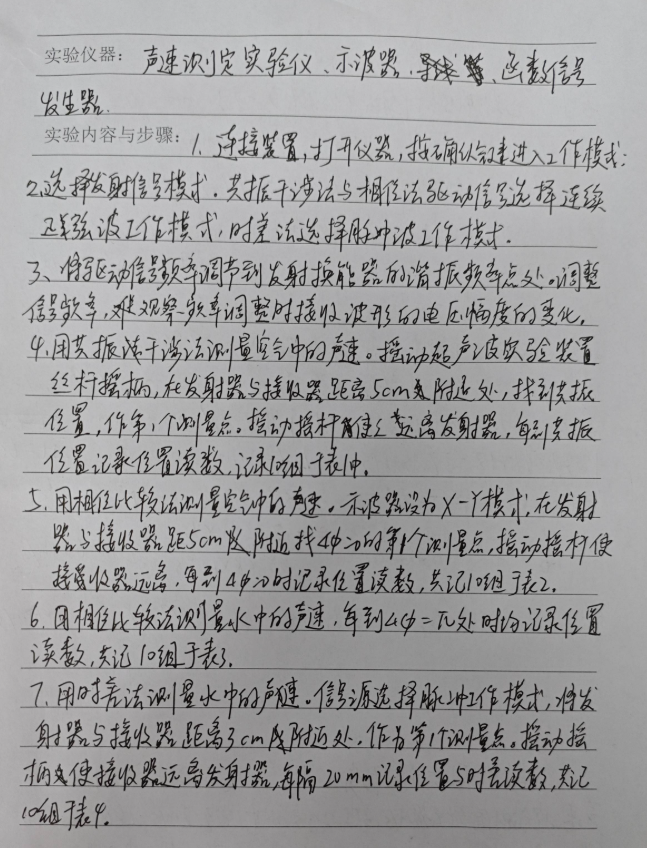 实验仪器: 声速测定实验仪、示波器、函数信号
发生器.
实验内容与步骤: 1. 连接装置,打开仪器,按确认键进入工作模式;
2.选择发射信号模式.共振干涉法与相位法驱动信号选择连续
正弦波工作模式,时差法选择脉冲波工作模式.
3、将驱动信号频率调节到发射换能器的谐振频率点处。调整
信号频率,观察频率调整时接收波形的电压幅度的变化.
4.用共振干涉法测量空气中的声速。摇动超声波实验装置
丝杆摇柄,在发射器与接收器距离5cm附近处,找到共振
位置,作第1个测量点。摇动摇杆使远离发射器,每到共振
位置记录位置读数,记录10组于表1中.
5.用相位比较法测量空气中的声速。示波器设为X-Y模式,在发射
器与接收器距5cm附近找Δφ=0的第1个测量点,摇动摇杆使
接收器远离,每到Δφ=0时记录位置读数,共记10组于表2.
6.用相位比较法测量水中的声速,每到Δφ=π处时均记录位置
读数,共记10组于表3.
7.用时差法测量水中的声速。信号源选择脉冲工作模式,将发
射器与接收器距离3cm附近处,作为第1个测量点。摇动摇
柄使接收器远离发射器,每隔20mm记录位置与时差读数,共记
10组于表4.